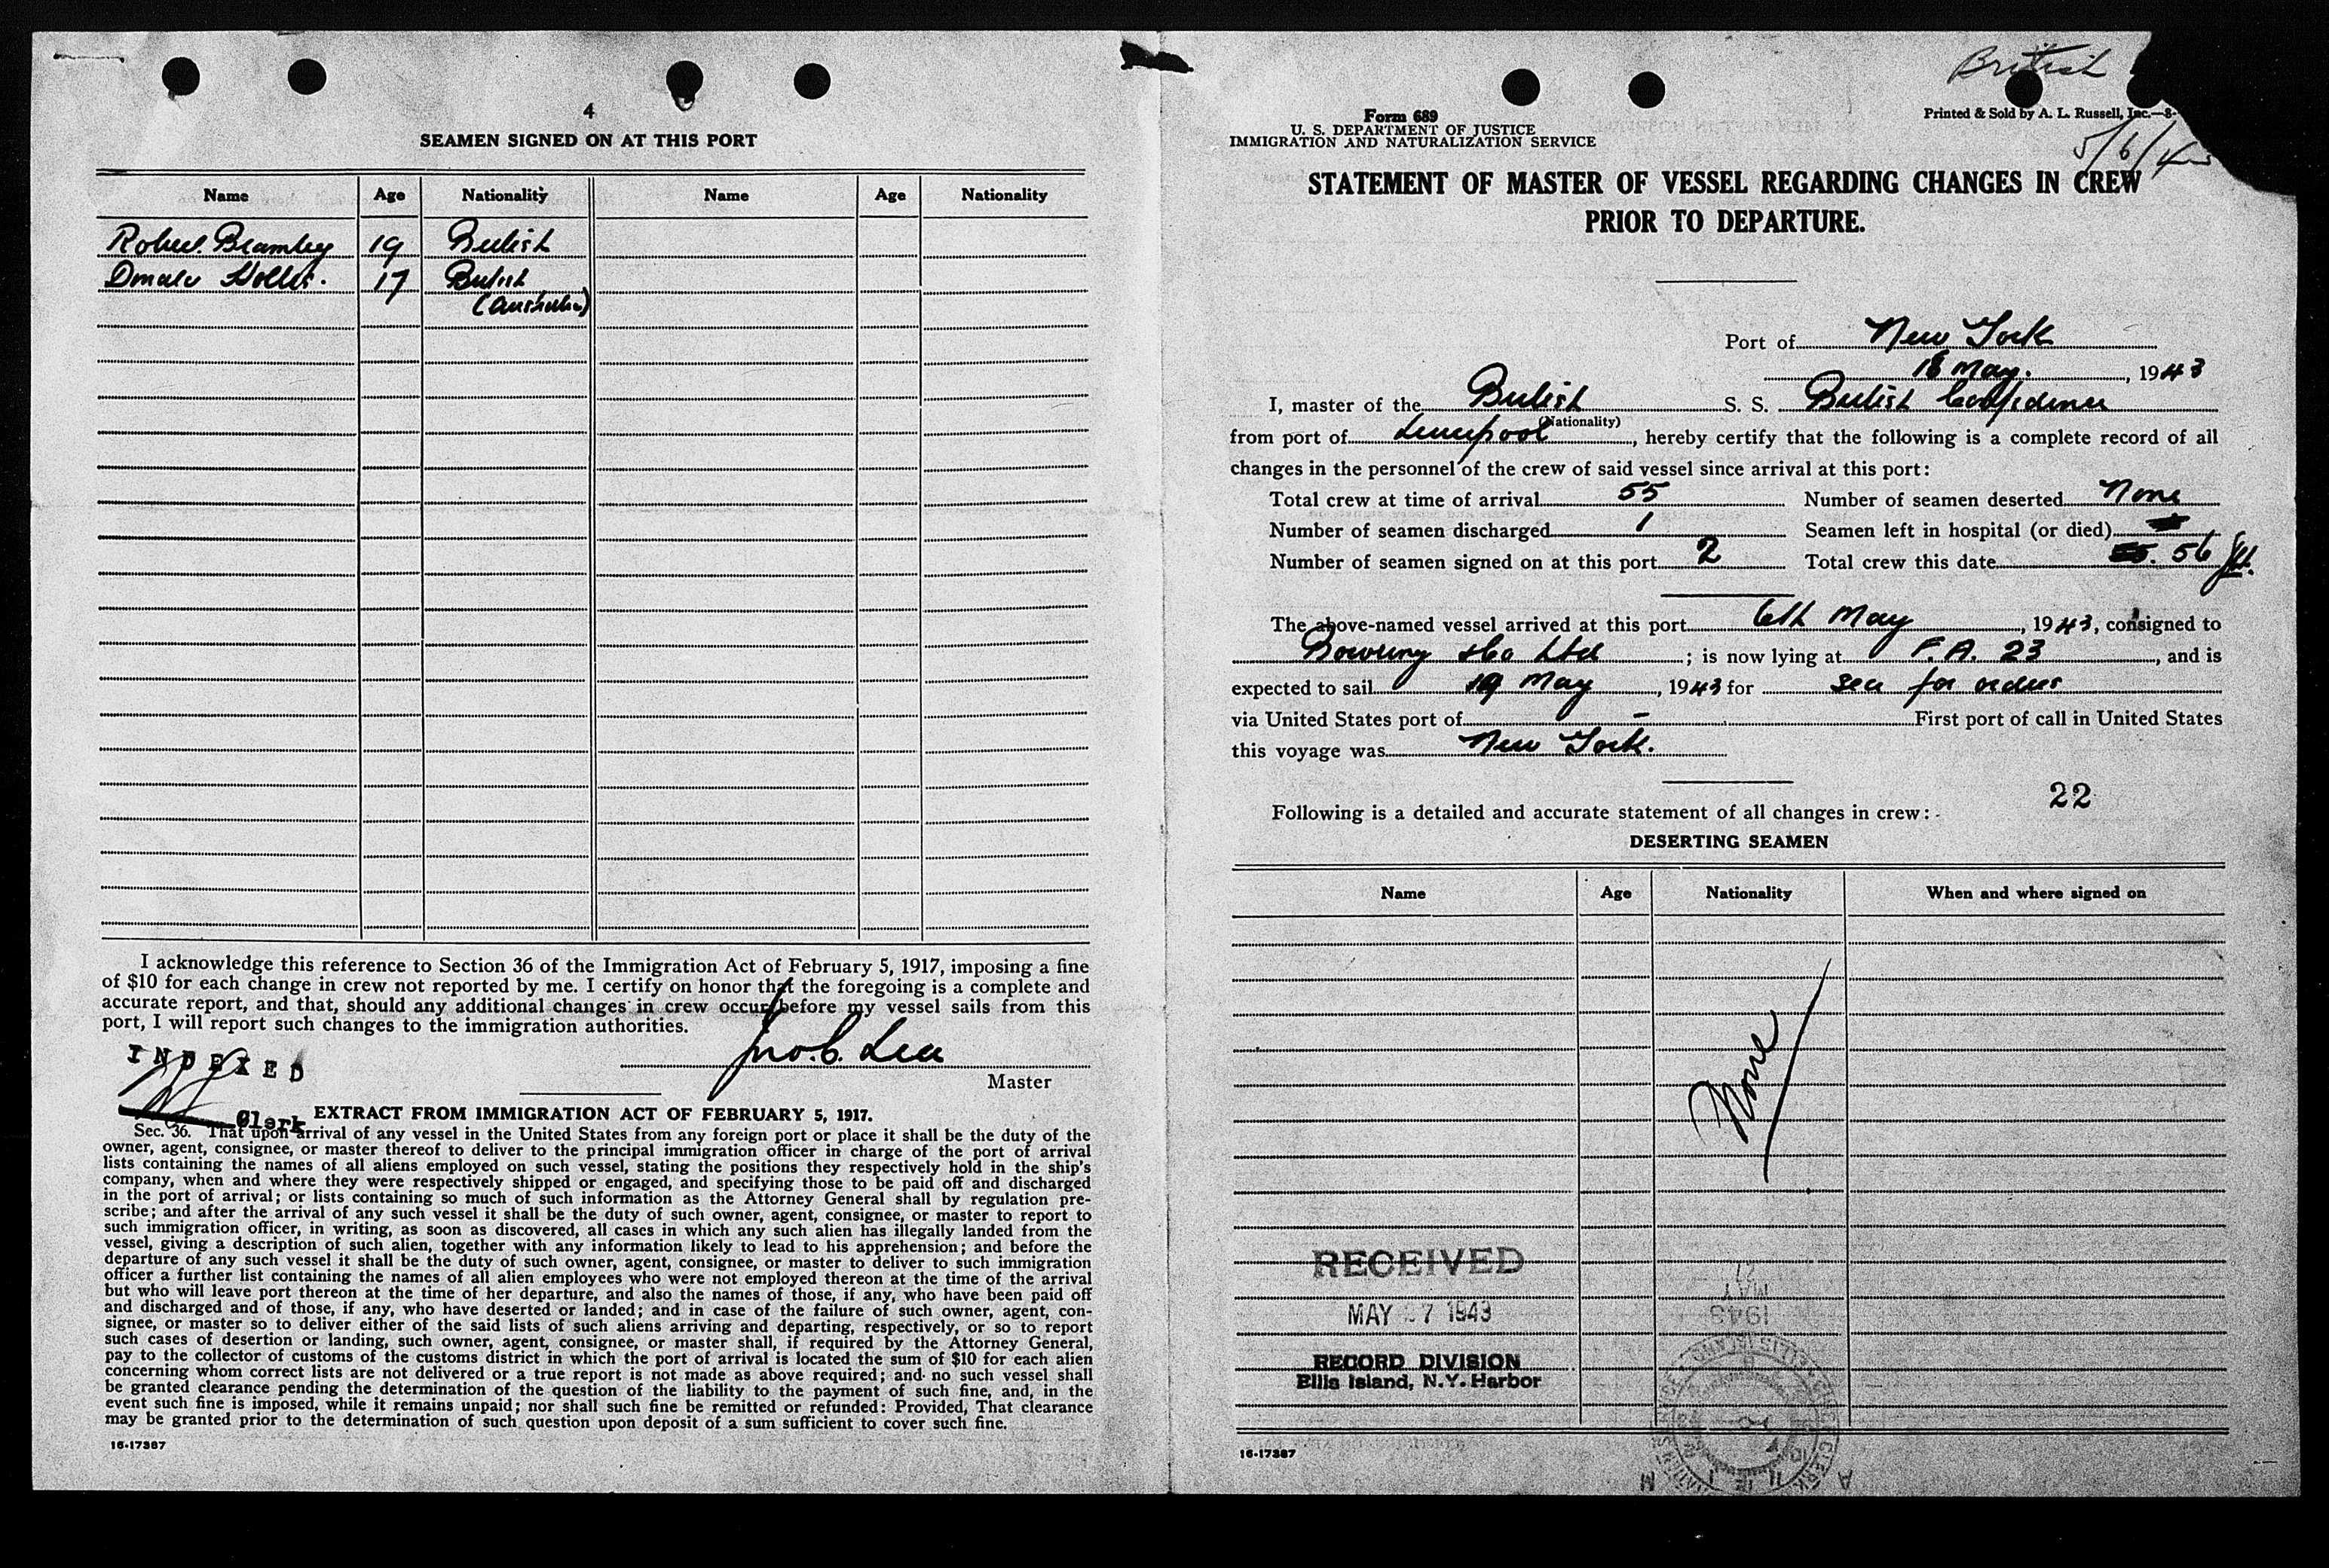 4
SEAMEN SIGNED ON AT THIS PORT
Name Age Nationality Name Age Nationality
Robert Bramley 19 British
Donald 17 British
(Australian)
I acknowledge this reference to Section 36 of the Immigration Act of February 5, 1917, imposing a fine
of $10 for each change in crew not reported by me. I certify on honor that the foregoing is a complete and
accurate report, and that, should any additional changes in crew occur before my vessel sails from this
port, I will report such changes to the immigration authorities.
INDEXED
Jno. C. Lea
Master
Clerk
EXTRACT FROM IMMIGRATION ACT OF FEBRUARY 5, 1917.
Sec. 36. That upon arrival of any vessel in the United States from any foreign port or place it shall be the duty of the
owner, agent, consignee, or master thereof to deliver to the principal immigration officer in charge of the port of arrival
lists containing the names of all aliens employed on such vessel, stating the positions they respectively hold in the ship's
company, when and where they were respectively shipped or engaged, and specifying those to be paid off and discharged
in the port of arrival; or lists containing so much of such information as the Attorney General shall by regulation pre-
scribe; and after the arrival of any such vessel it shall be the duty of such owner, agent, consignee, or master to report to
such immigration officer, in writing, as soon as discovered, all cases in which any such alien has illegally landed from the
vessel, giving a description of such alien, together with any information likely to lead to his apprehension; and before the
departure of any such vessel it shall be the duty of such owner, agent, consignee, or master to deliver to such immigration
officer a further list containing the names of all alien employees who were not employed thereon at the time of the arrival
but who will leave port thereon at the time of her departure, and also the names of those, if any, who have been paid off
and discharged and of those, if any, who have deserted or landed; and in case of the failure of such owner, agent, con-
signee, or master so to deliver either of the said lists of such aliens arriving and departing, respectively, or so to report
such cases of desertion or landing, such owner, agent, consignee, or master shall, if required by the Attorney General,
pay to the collector of customs of the customs district in which the port of arrival is located the sum of $10 for each alien
concerning whom correct lists are not delivered or a true report is not made as above required; and no such vessel shall
be granted clearance pending the determination of the question of the liability to the payment of such fine, and, in the
event such fine is imposed, while it remains unpaid; nor shall such fine be remitted or refunded: Provided, That clearance
may be granted prior to the determination of such question upon deposit of a sum sufficient to cover such fine.
16-17387
British
Form 689
U. S. DEPARTMENT OF JUSTICE
IMMIGRATION AND NATURALIZATION SERVICE
Printed & Sold by A. L. Russell, Inc.—8-
5/6/43
STATEMENT OF MASTER OF VESSEL REGARDING CHANGES IN CREW
PRIOR TO DEPARTURE.
Port of New York
18 May. , 1943
I, master of the British S. S. British Confidence
(Nationality)
from port of Liverpool , hereby certify that the following is a complete record of all
changes in the personnel of the crew of said vessel since arrival at this port:
Total crew at time of arrival 55 Number of seamen deserted None
Number of seamen discharged 1 Seamen left in hospital (or died)
Number of seamen signed on at this port 2 Total crew this date 56
The above-named vessel arrived at this port 6th May , 1943, consigned to
Bowring & Co Ltd ; is now lying at F.A. 23 , and is
expected to sail 19 May , 1943 for sea for orders
via United States port of — First port of call in United States
this voyage was New York.
22
Following is a detailed and accurate statement of all changes in crew:
DESERTING SEAMEN
Name Age Nationality When and where signed on
None
RECEIVED
MAY 27 1943
RECORD DIVISION
Ellis Island, N.Y. Harbor
16-17387